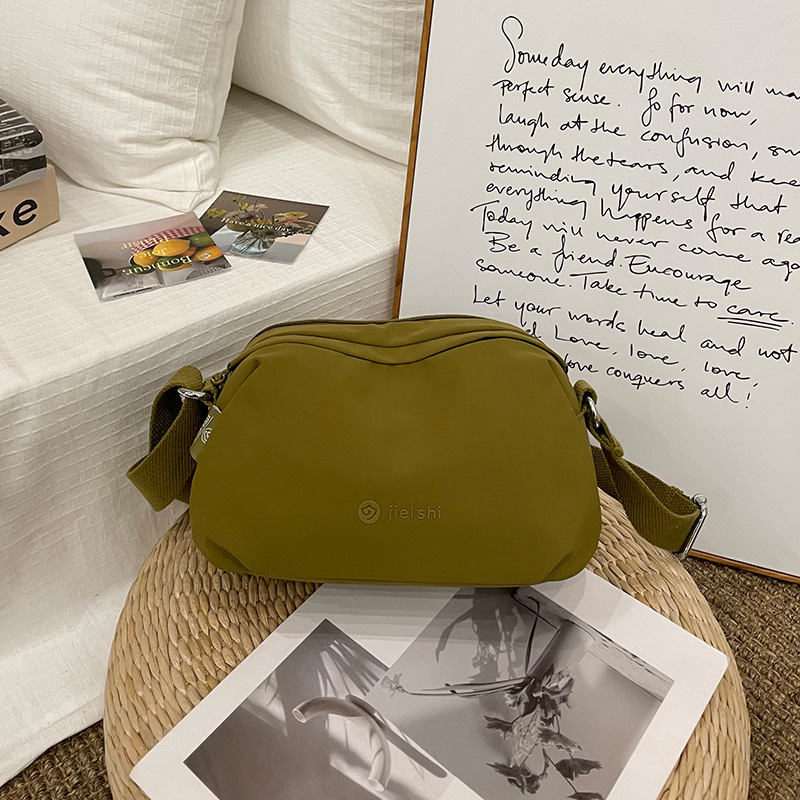 Someday everything will ma
perfect sense. So for now,
laugh at the confusion, sm
through the tears, and keep
reminding yourself that
everything happens for a rea
Today will never come aga
Be a friend. Encourage
someone. Take time to care.
Let your words heal and not
Love, love, love,
love conquers all!
Plaisir
Joie
Bonheur
ke
jieishi